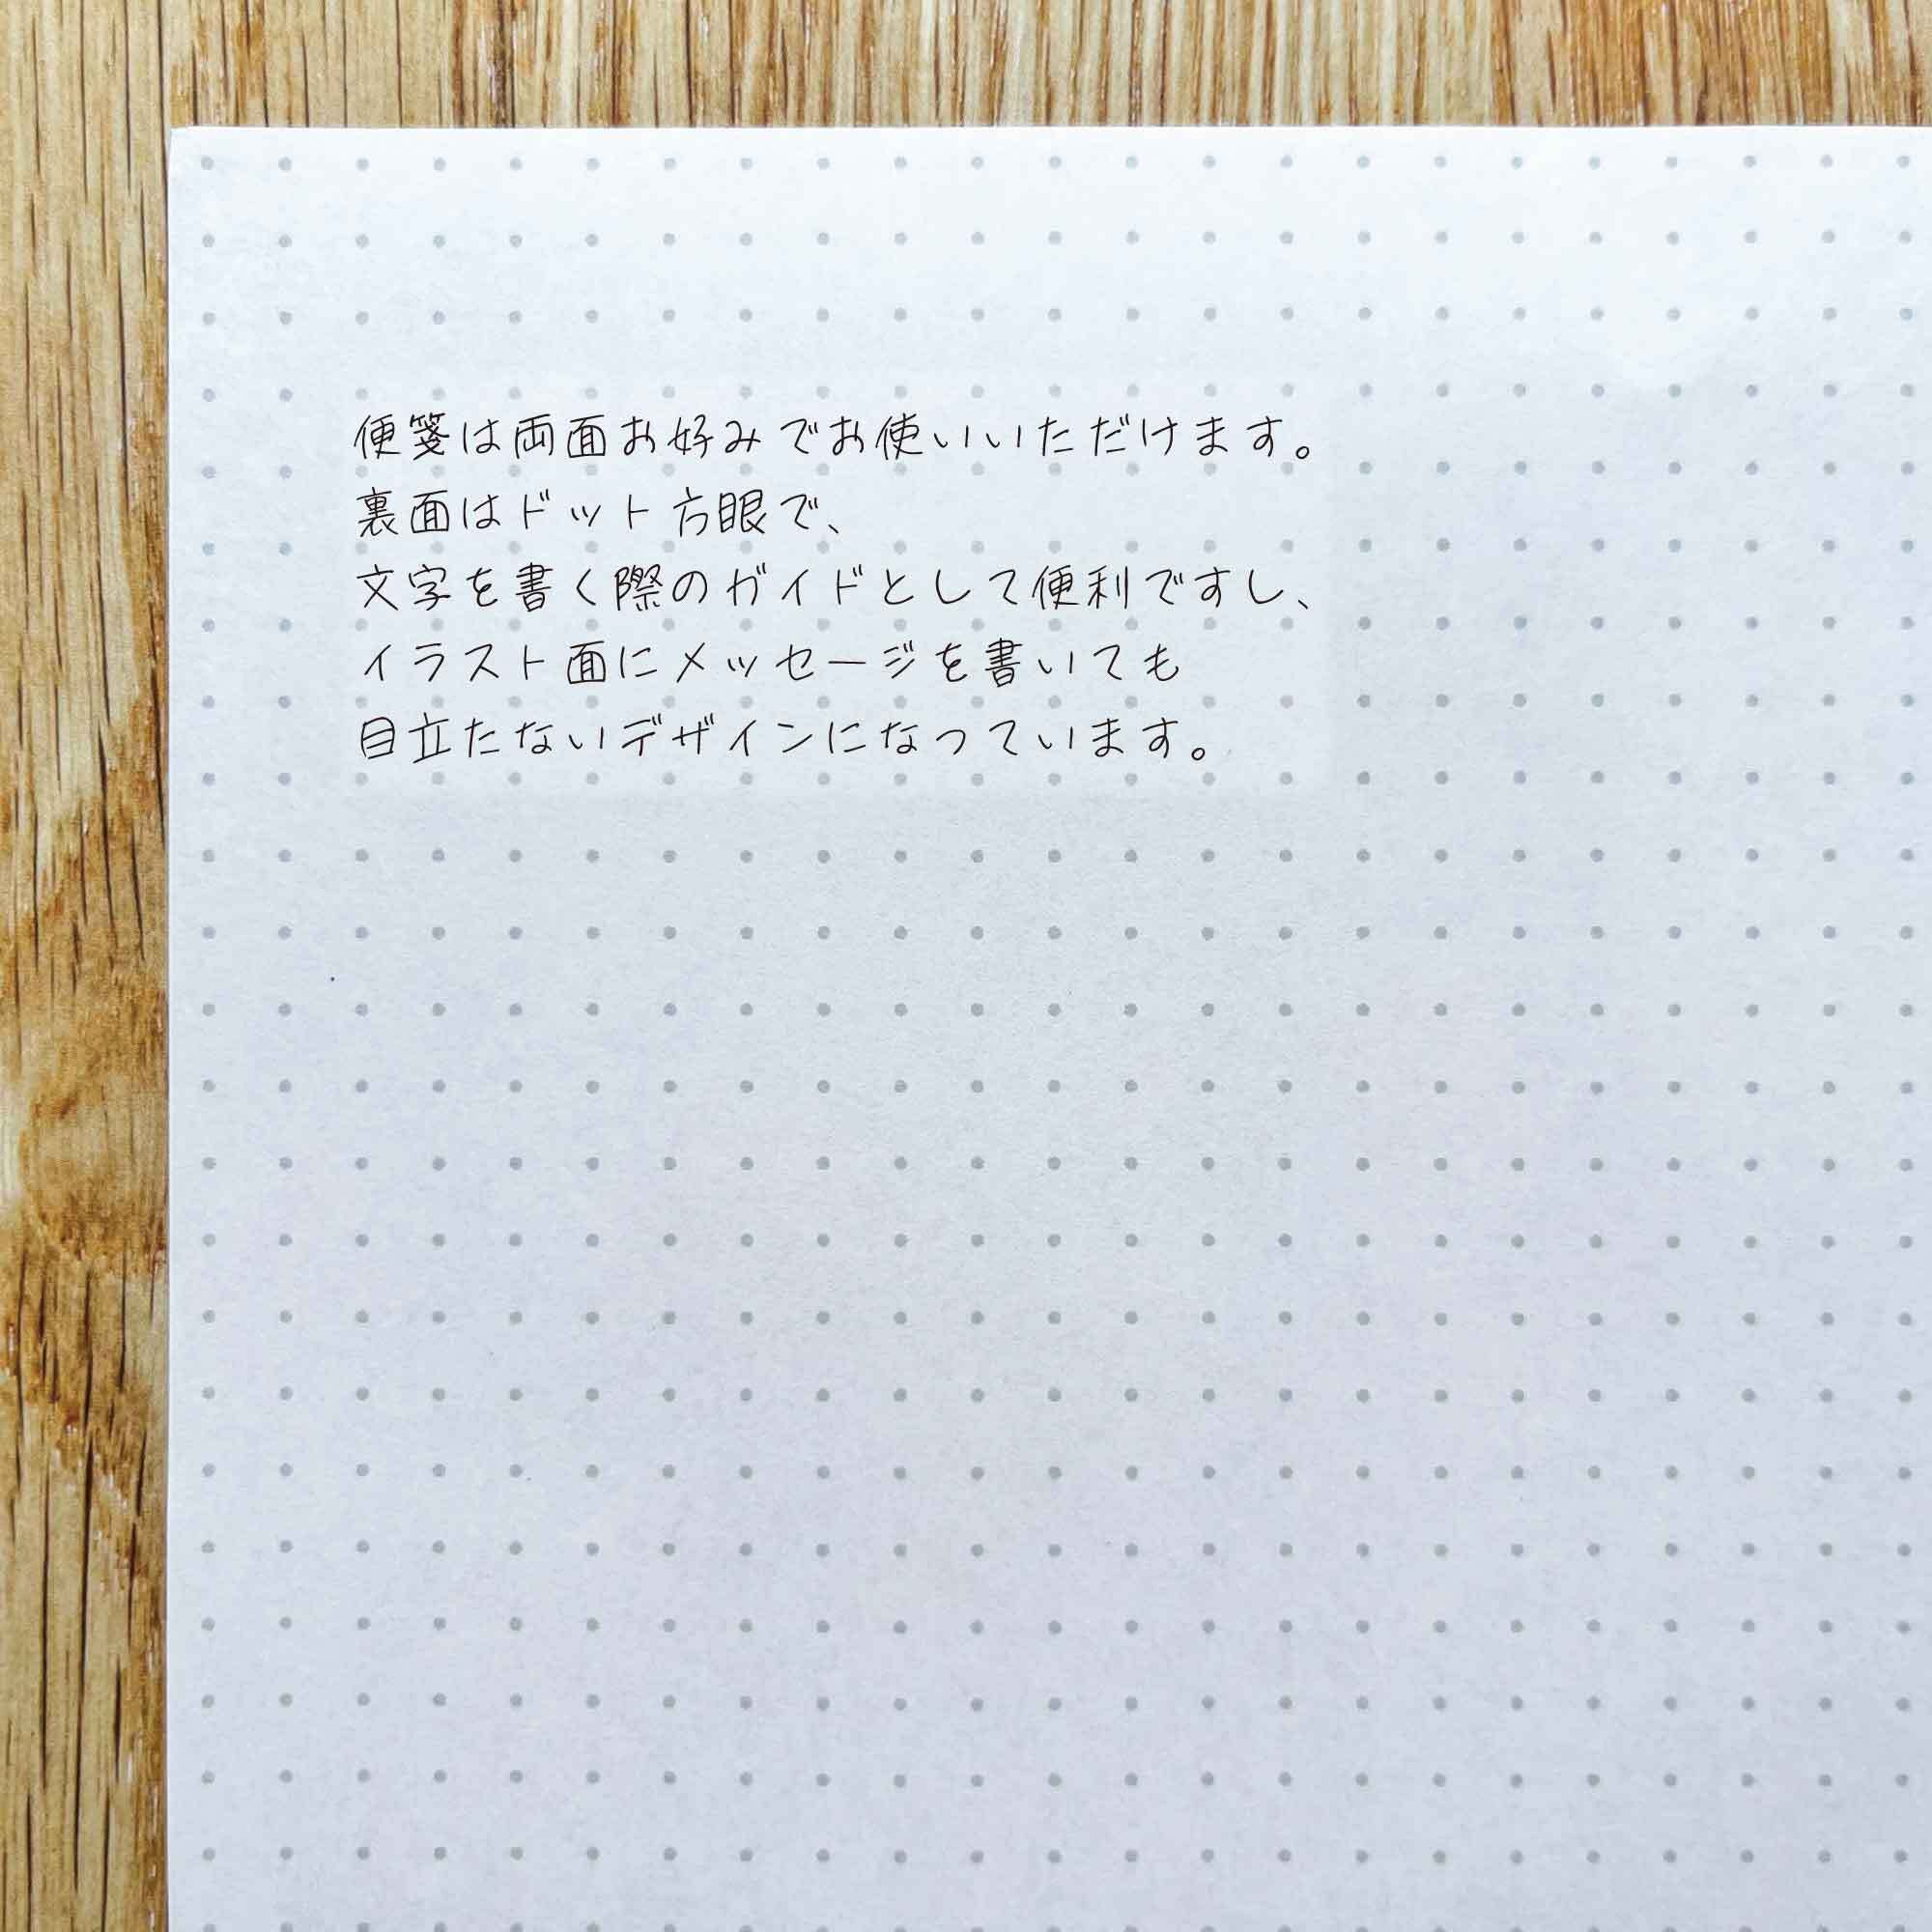 便箋は両面お好みでお使いいただけます。
裏面はドット方眼で、
文字を書く際のガイドとして便利ですし、
イラスト面にメッセージを書いても
目立たないデザインになっています。